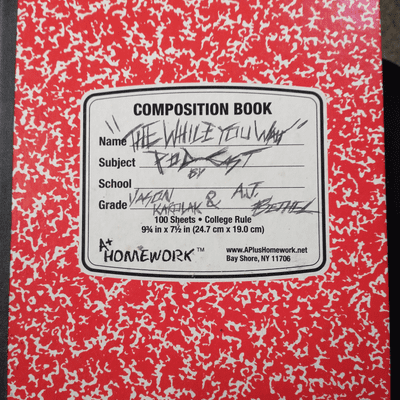 COMPOSITION BOOK
Name "THE WHILE YOU WAIT"
Subject PODCAST
BY
School
Grade JASON KAROLAK & A.J. BETHEL
100 Sheets • College Rule
9¾ in x 7½ in (24.7 cm x 19.0 cm)
A+ HOMEWORK™
www.APlusHomework.net
Bay Shore, NY 11706